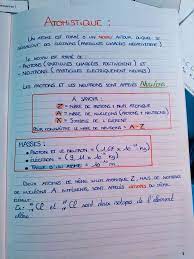 ATOMISTIQUE :
UN ATOME EST FORMÉ D'UN NOYAU AUTOUR DUQUEL SE
DÉPLACENT DES ÉLECTRONS (PARTICULES CHARGÉES NÉGATIVEMENT)
LE NOYAU EST FORMÉ DE :
- PROTONS (PARTICULES CHARGÉES POSITIVEMENT) ET
- NEUTRONS (PARTICULES ÉLECTRIQUEMENT NEUTRES)
LES PROTONS ET LES NEUTRONS SONT APPELÉS NUCLÉONS
À SAVOIR :
Z = NOMBRE DE PROTONS D'UN ATOMIQUE
A = NOMBRE DE NUCLÉONS (PROTONS ET NEUTRONS)
X = SYMBOLE DE L'ÉLÉMENT
POUR CONNAÎTRE LE NOMBRE DE NEUTRONS = A - Z
MASSES :
PROTON ET LE NEUTRON = 1,67 × 10 kg
ÉLECTRON = 9,1 × 10 kg
TAILLE D'UN ATOME = 10 m
DEUX ATOMES DE MÊME NUMÉRO ATOMIQUE Z, MAIS DE NOMBRE DE
NUCLÉONS A DIFFÉRENTS, SONT APPELÉS ISOTOPES DU MÊME
ÉLÉMENT.
Ex : Cl et Cl sont deux isotopes de l'élément
chlore.